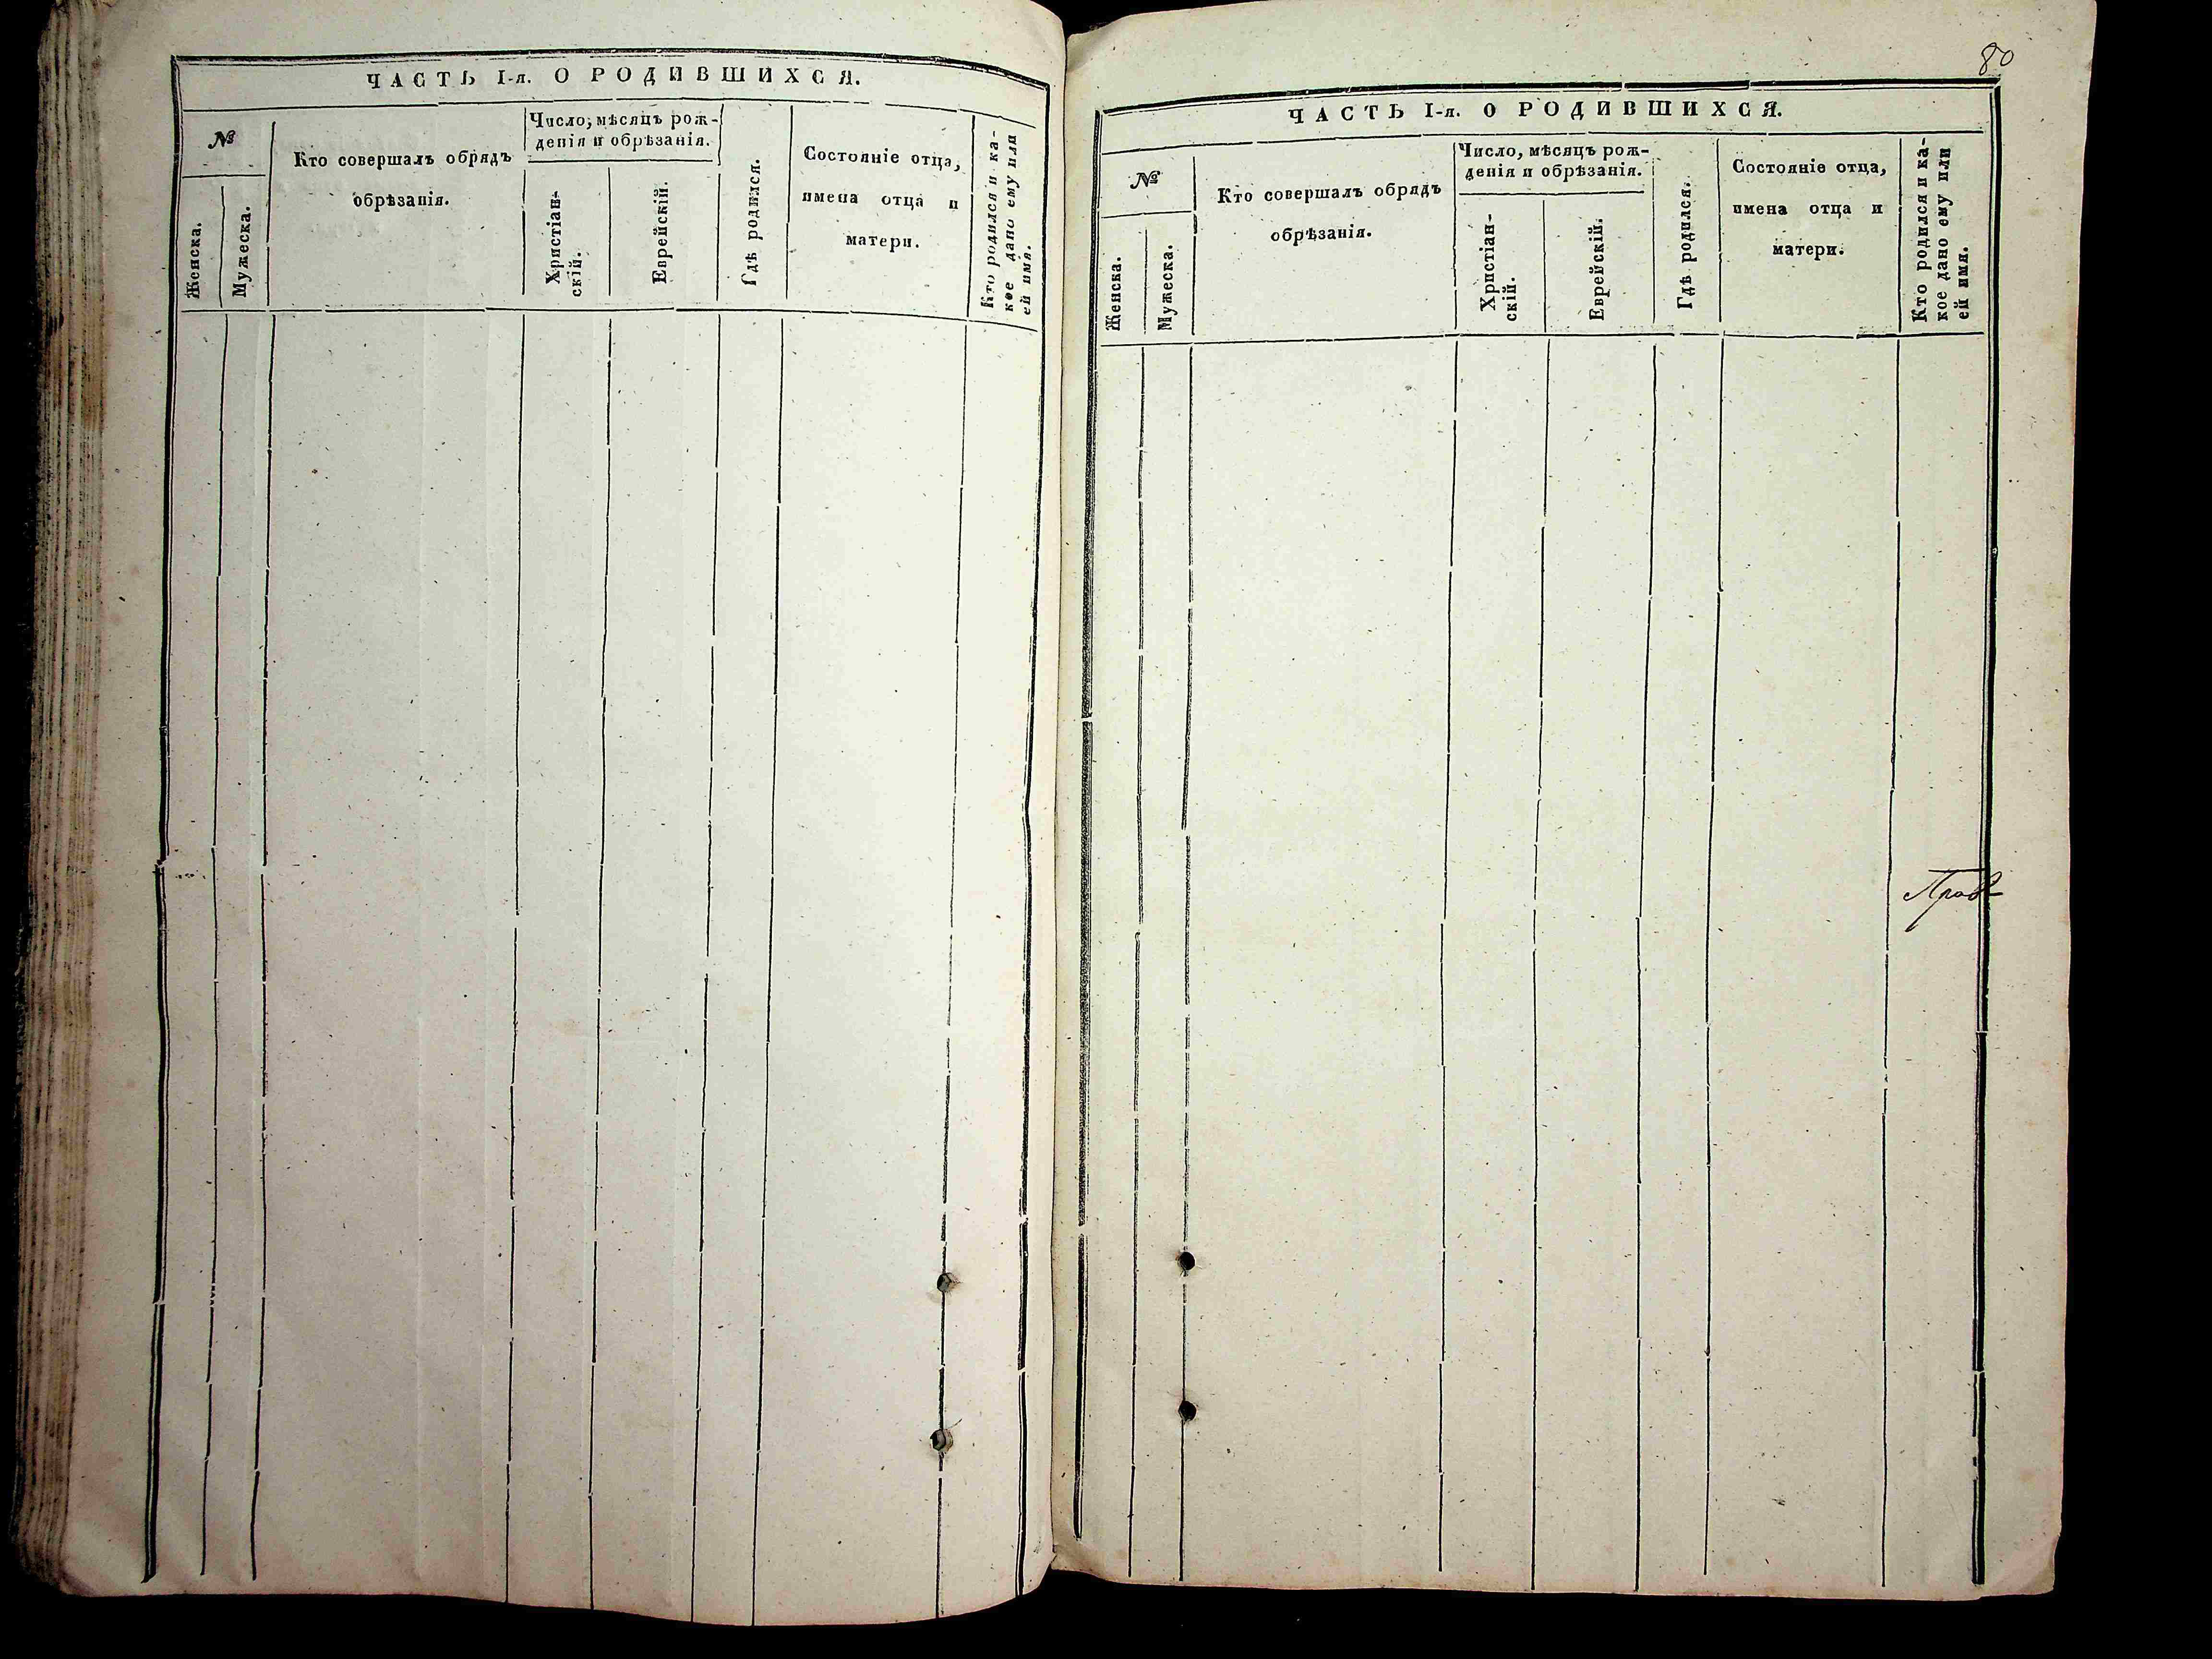 ЧАСТЬ I-я. О РОДИВШИХСЯ.
№
Женска.
Мужеска.
Кто совершалъ обрядъ
обрѣзанія.
Число, мѣсяцъ рож-
денія и обрѣзанія.
Христіан-
скій.
Еврейскій.
Гдѣ родился.
Состояніе отца,
имена отца и
матери.
Кто родился и ка-
кое дано ему или
ей имя.
80
ЧАСТЬ I-я. О РОДИВШИХСЯ.
№
Женска.
Мужеска.
Кто совершалъ обрядъ
обрѣзанія.
Число, мѣсяцъ рож-
денія и обрѣзанія.
Христіан-
скій.
Еврейскій.
Гдѣ родился.
Состояніе отца,
имена отца и
матери.
Кто родился и ка-
кое дано ему или
ей имя.